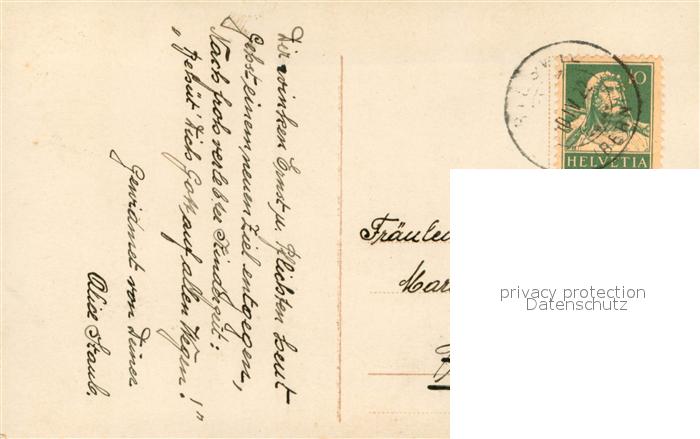 Dir winken Ernst u. Pflichten heut
Gehst einem neuen Ziel entgegen,
Nach froh verlebter Kinderzeit:
„Behüt' Dich Gott auf allen Wegen!"
Gewidmet von Deiner
Alice Staub.
10
HELVETIA
Fräulei
Mar
privacy protection
Datenschutz